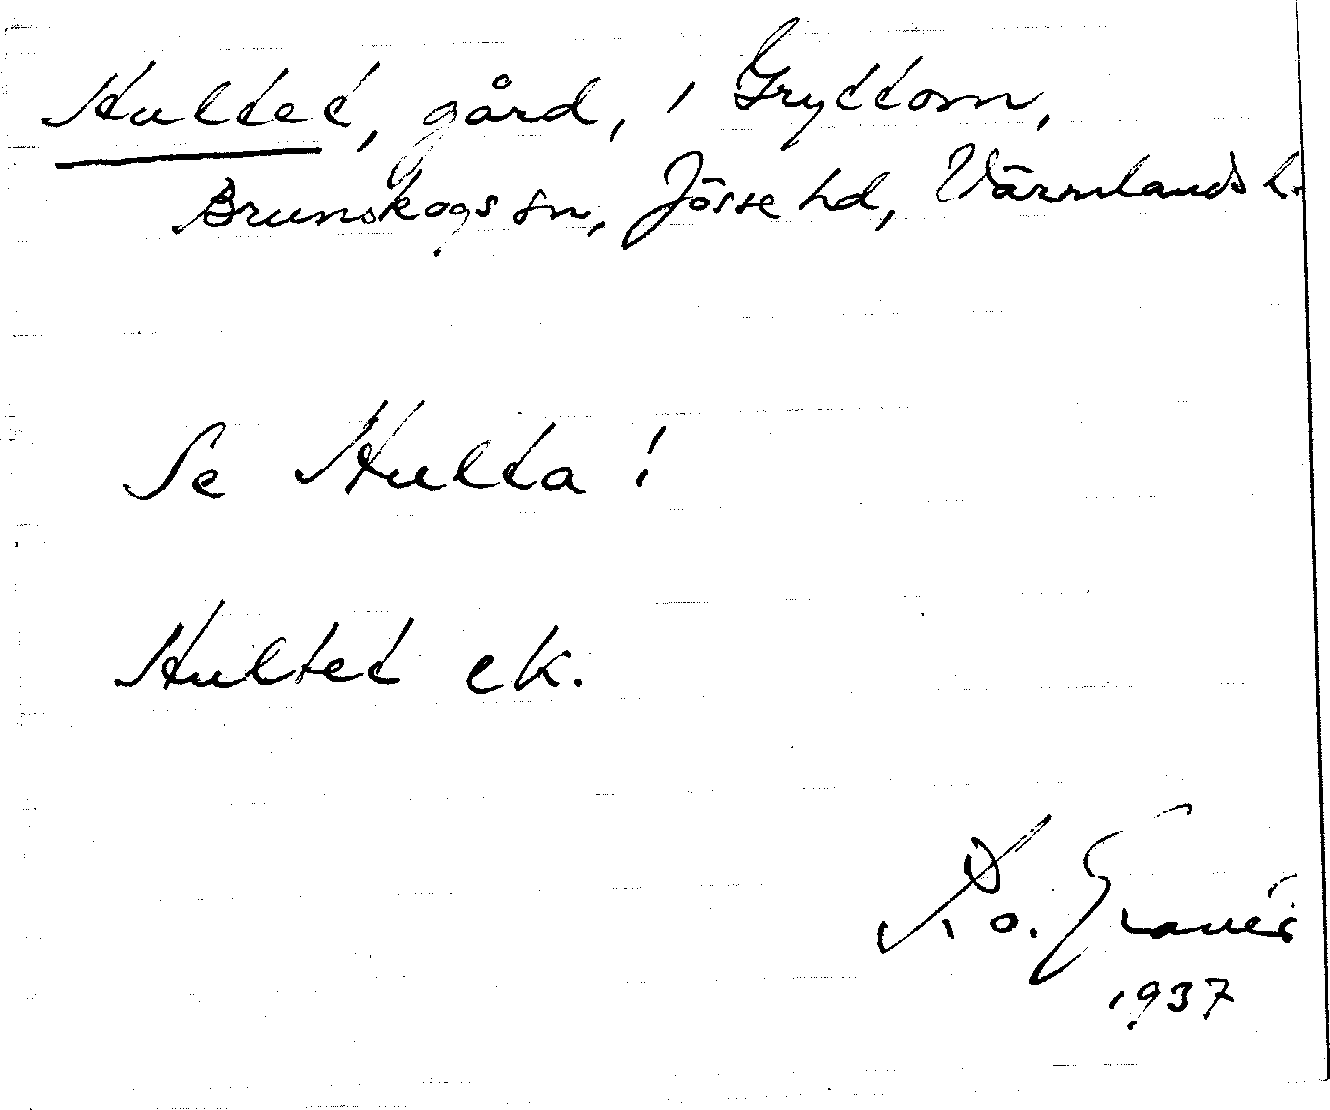 Hultet, gård, i Gryttom,
Brunskogs sn, Jösse hd, Värmlands l.
Se Hulta!
Hultet ek.
K. O. Granér
1937